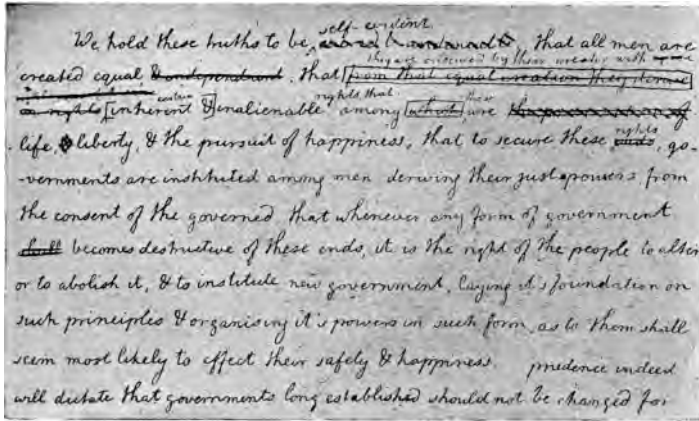 self-evident
We hold these truths to be that all men are
they are endowed by their creator with
created equal & independent, that from that equal creation they derive
certain rights that these
rights inherent & inalienable among which are
rights
life, liberty, & the pursuit of happiness, that to secure these ends, go-
-vernments are instituted among men deriving their just powers from
the consent of the governed that whenever any form of government
shall becomes destructive of these ends, it is the right of the people to alter
or to abolish it, & to institute new government, laying it's foundation on
such principles & organising it's powers in such form, as to them shall
seem most likely to effect their safety & happiness. prudence indeed
will dictate that governments long established should not be changed for